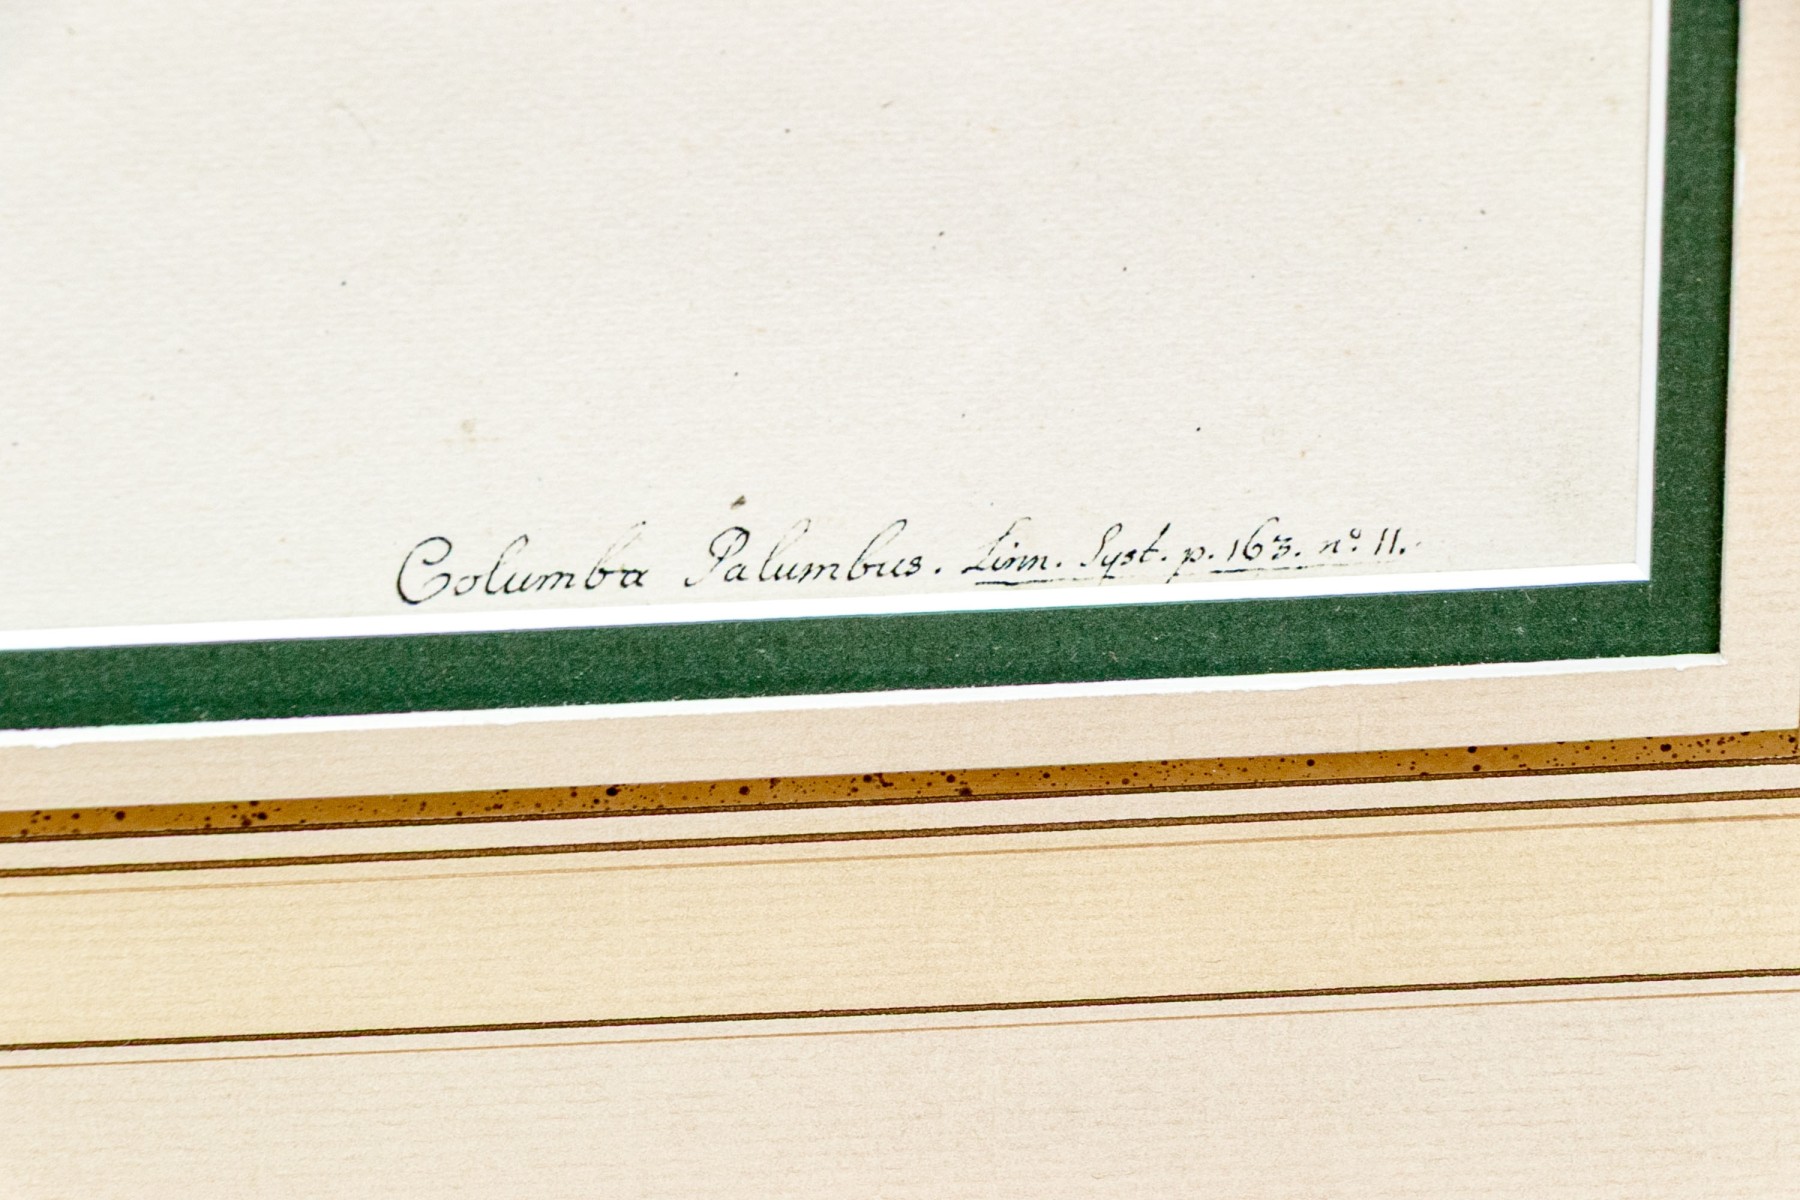 Columba Palumbus. Linn. Syst. p. 163. nº. 11.